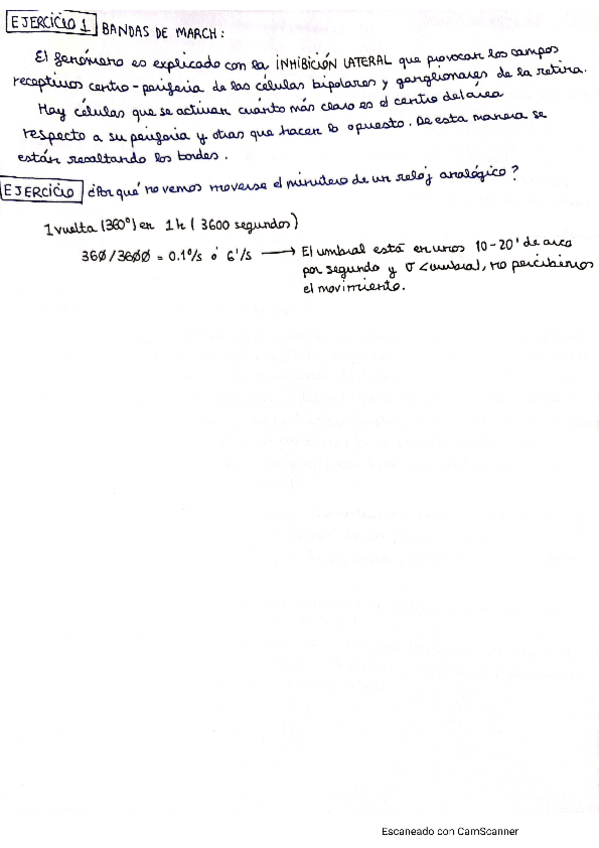 EJERCICIO 1 BANDAS DE MARCH:
El fenómeno es explicado con la INHIBICIÓN LATERAL que provocan los campos
receptivos centro-periferia de las células bipolares y ganglionares de la retina.
Hay células que se activan cuánto más claro es el centro del área
respecto a su periferia y otras que hacen lo opuesto. De esta manera se
están resaltando los bordes.
EJERCICIO ¿Por qué no vemos moverse el minutero de un reloj analógico?
1 vuelta (360°) en 1h (3600 segundos)
360/3600 = 0.1°/s ó 6'/s → El umbral está en unos 10-20' de arco
por segundo y v < umbral, no percibimos
el movimiento.
Escaneado con CamScanner